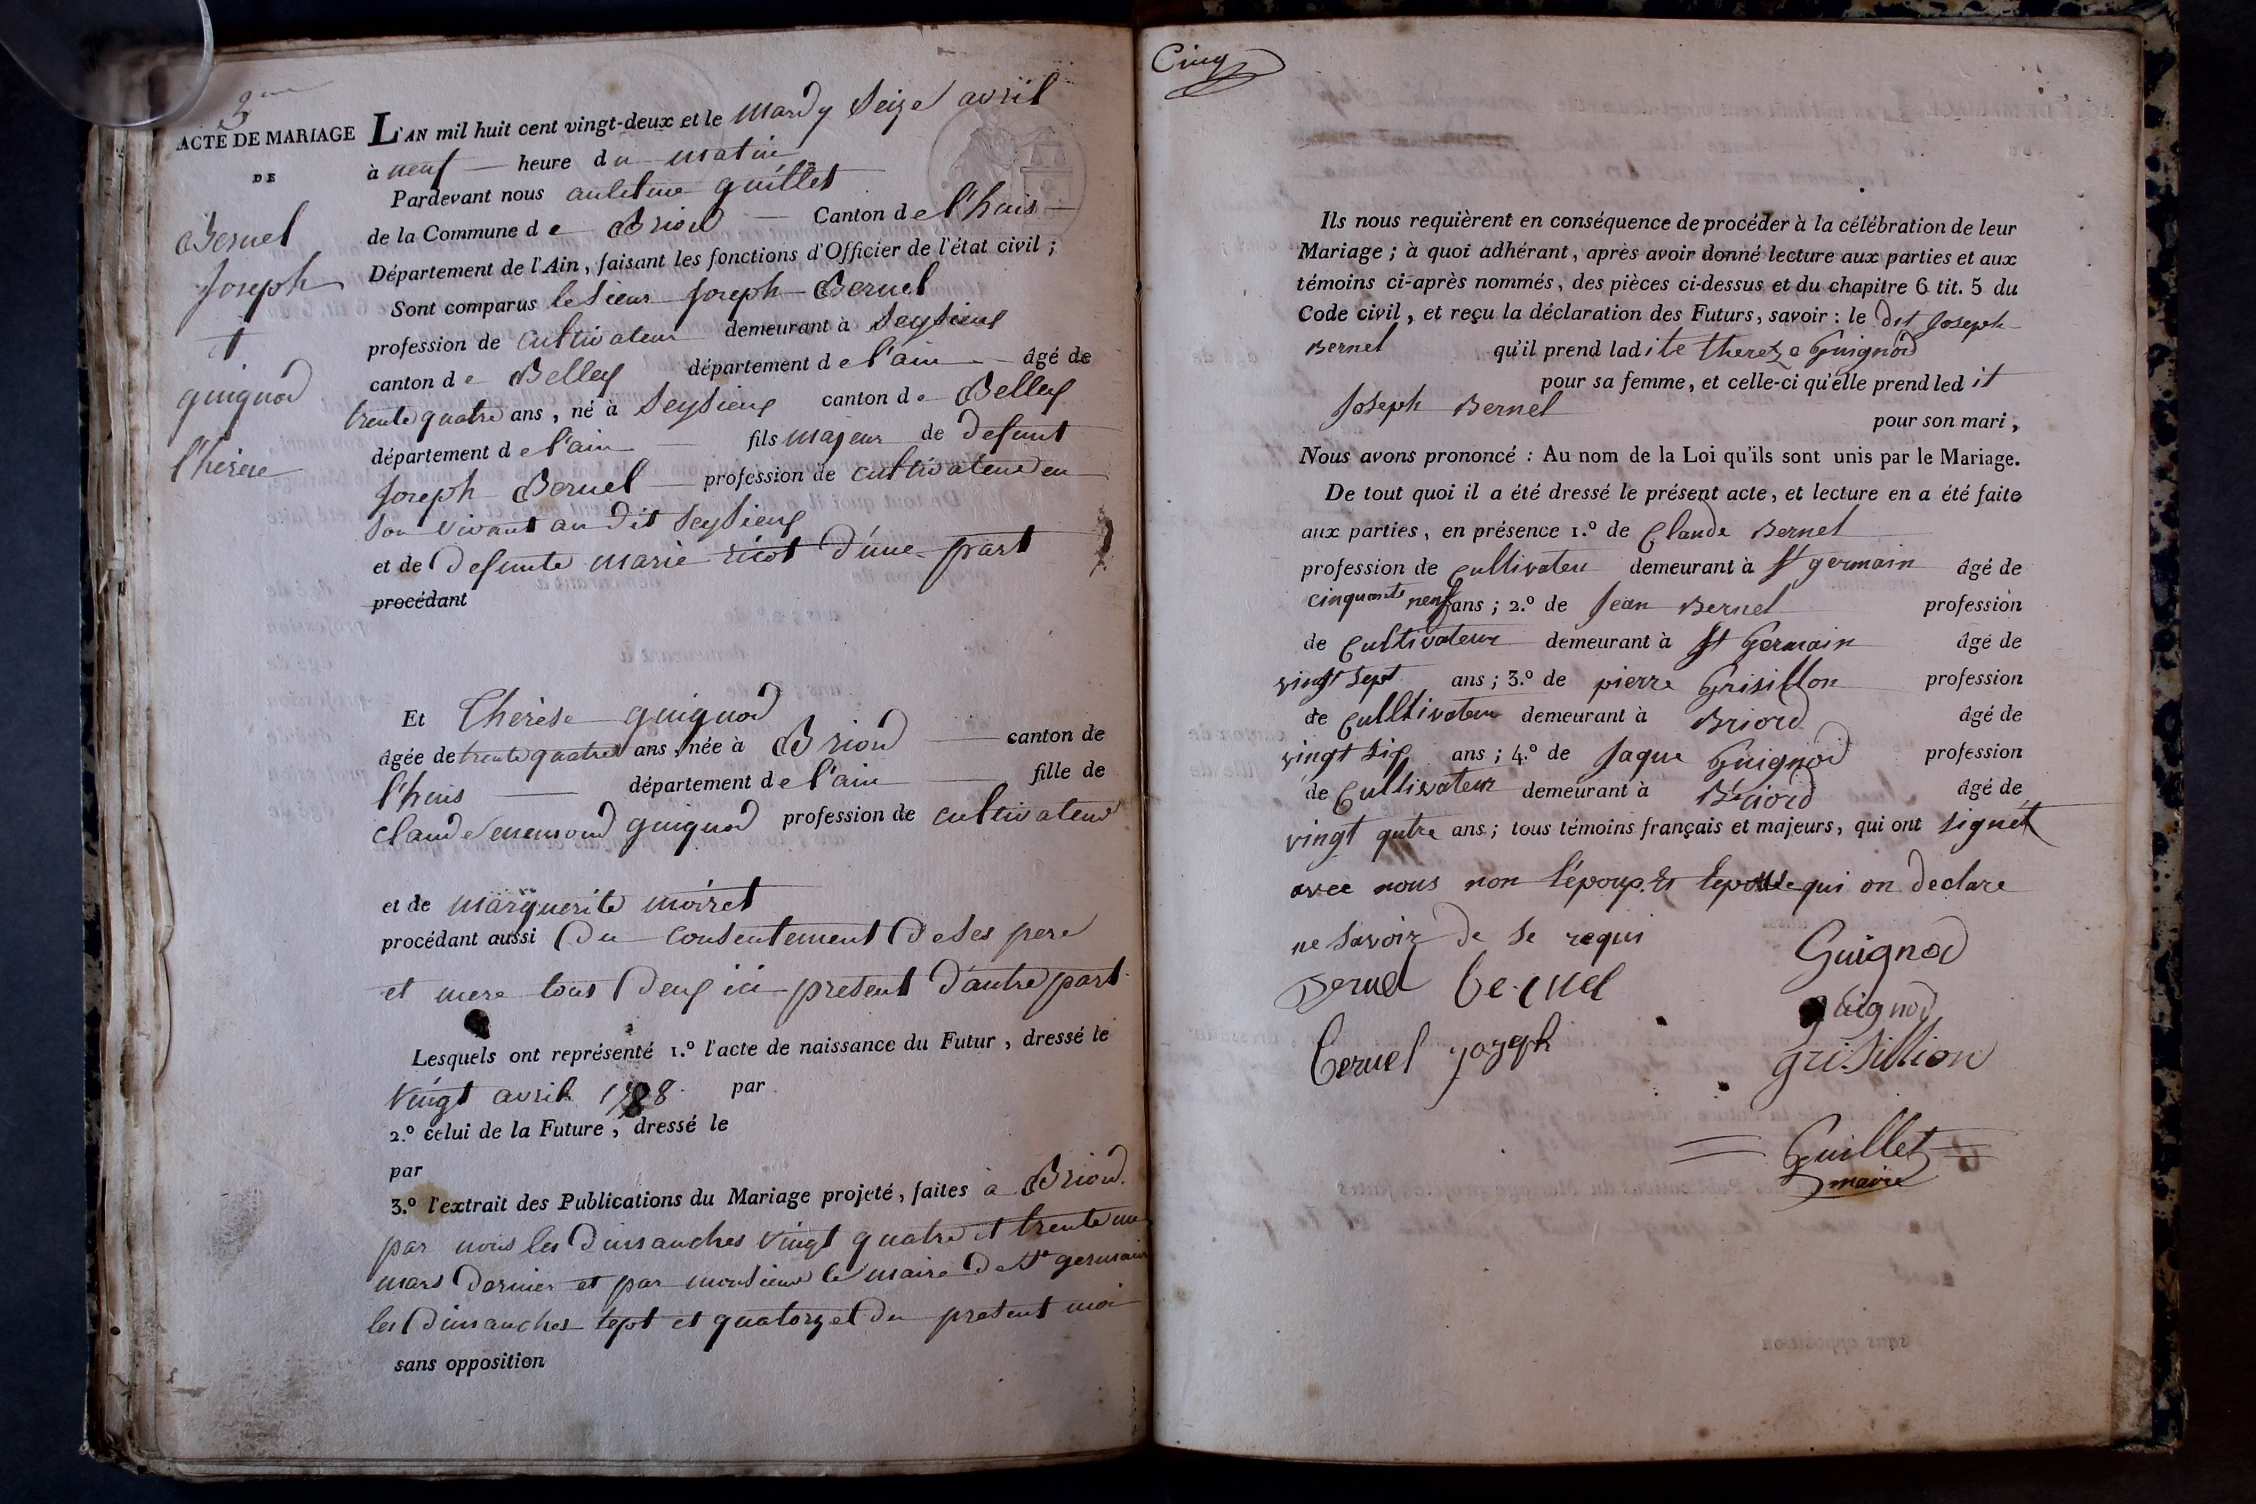 3me
ACTE DE MARIAGE
DE
Bernel
Joseph
et
guignod
therese
L'AN mil huit cent vingt-deux et le mardy Seize avril
à neuf heure du matin
Pardevant nous guillet
de la Commune de Briord Canton de l'huis
Département de l'Ain, faisant les fonctions d'Officier de l'état civil ;
Sont comparus le Sieur Joseph Bernel
profession de cultivateur demeurant à Seysieux
canton de Belley département de l'ain âgé de
trente quatre ans, né à Seysieux canton de Belley
département de l'ain fils majeur de defunt
Joseph Bernel profession de cultivateur en
Son vivant au dit Seysieux
et de defunte marie ricot d'une part
procédant
Et Thérèse guignod
âgée de trente quatre ans, née à Briord canton de
l'huis département de l'ain fille de
claude guignod profession de cultivateur
et de marguerite moiret
procédant aussi Du consentement De Ses pere
et mere tous Deux ici present D'autre part
Lesquels ont représenté 1.º l'acte de naissance du Futur, dressé le
vingt avril 1788 par
2.º celui de la Future, dressé le
par
3.º l'extrait des Publications du Mariage projeté, faites à Briord
par nous les Dimanches vingt quatre et trente un
mars Dernier et par monsieur le maire De St germain
les Dimanches sept et quatorze Du present moi
sans opposition
Cinq
Ils nous requièrent en conséquence de procéder à la célébration de leur
Mariage ; à quoi adhérant, après avoir donné lecture aux parties et aux
témoins ci-après nommés, des pièces ci-dessus et du chapitre 6 tit. 5 du
Code civil, et reçu la déclaration des Futurs, savoir : le dit Joseph
Bernel qu'il prend ladite thereze Guignod
pour sa femme, et celle-ci qu'elle prend ledit
Joseph Bernel
pour son mari,
Nous avons prononcé : Au nom de la Loi qu'ils sont unis par le Mariage.
De tout quoi il a été dressé le présent acte, et lecture en a été faite
aux parties, en présence 1.º de Claude Bernel
profession de Cultivateu demeurant à St germain âgé de
cinquante neuf ans ; 2.º de Jean Bernel profession
de Cultivateur demeurant à St Germain âgé de
vingt Sept ans ; 3.º de pierre Grisillon profession
de Culltivateur demeurant à Briord âgé de
vingt Six ans ; 4.º de Jaque Guignod profession
de Cultivateur demeurant à Briord âgé de
vingt qutre ans ; tous témoins français et majeurs, qui ont signét
avec nous non l'époux Et lepouse qui on declare
ne Savoir de Se requi
Bernel bernel Guignod
guignod
bernel jozeph griSillion
Guillet
maire